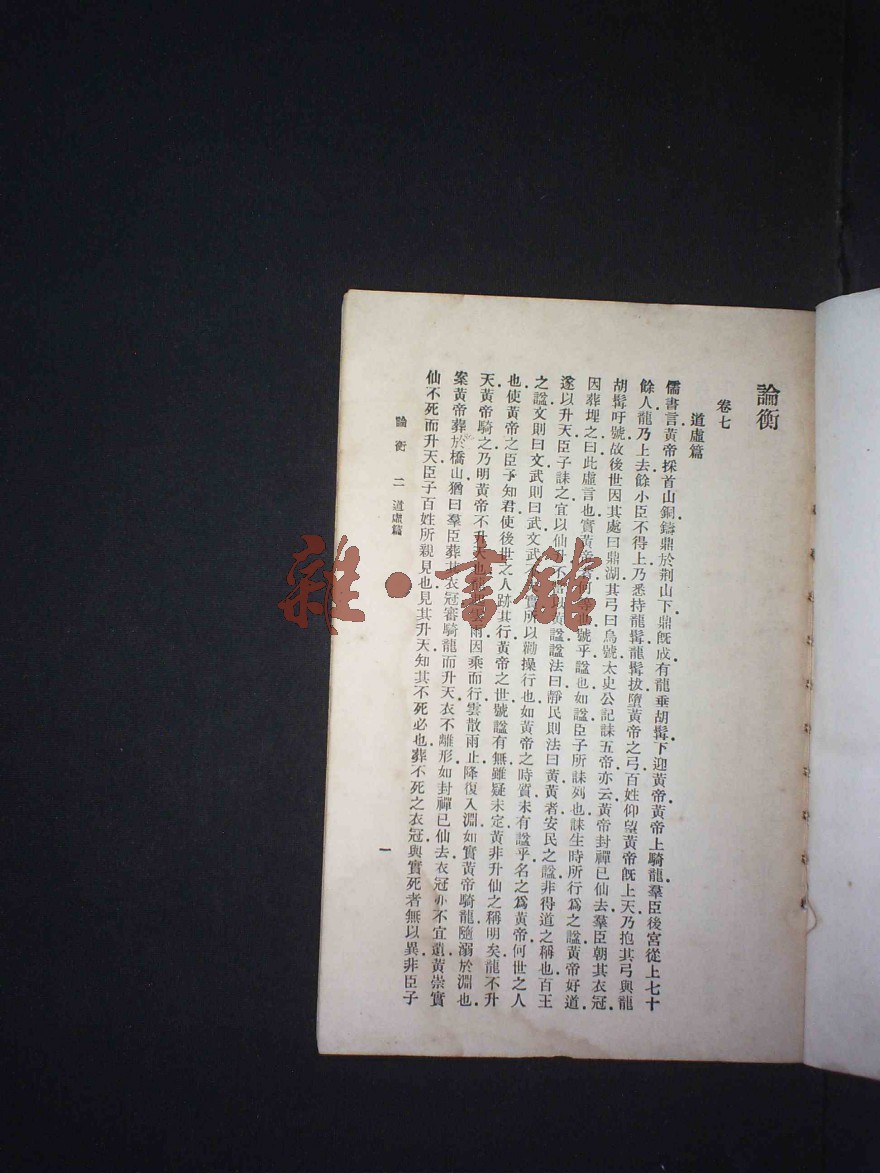 論衡
卷七
道虛篇
儒書言黃帝採首山銅鑄鼎於荆山下鼎旣成有龍垂胡髯下迎黃帝黃帝上騎龍羣臣後宮從上七十
餘人龍乃上去餘小臣不得上乃悉持龍髯龍髯拔墮黃帝之弓百姓仰望黃帝旣上天乃抱其弓與龍
胡髯吁號故後世因其處曰鼎湖其弓曰烏號太史公記誄五帝亦云黃帝封禪已仙去羣臣朝其衣冠
因葬埋之曰此虛言也實黃帝者何等也號乎諡也如諡臣子所誄列也誄生時所行爲之諡黃帝好道
遂以升天臣子誄之宜以仙升不當以黃諡諡法曰靜民則法曰黃黃者安民之諡非得道之稱也百王
之諡文則曰文武則曰武文武不失實所以勸操行也如黃帝之時質未有諡乎名之爲黃帝何世之人
也使黃帝之臣子知君使後世之人跡其行黃帝之世號諡有無雖疑未定黃非升仙之稱明矣龍不升
天黃帝騎之乃明黃帝不升天也龍起雲雨因乘而行雲散雨止降復入淵如實黃帝騎龍隨溺於淵也
案黃帝葬於橋山猶曰羣臣葬其衣冠審騎龍而升天衣不離形如封禪已仙去衣冠亦不宜遺黃帝實
仙不死而升天臣子百姓所親見也見其升天知其不死必也葬不死之衣冠與實死者無以異非臣子
論衡 二 道虛篇
一
雜·書館